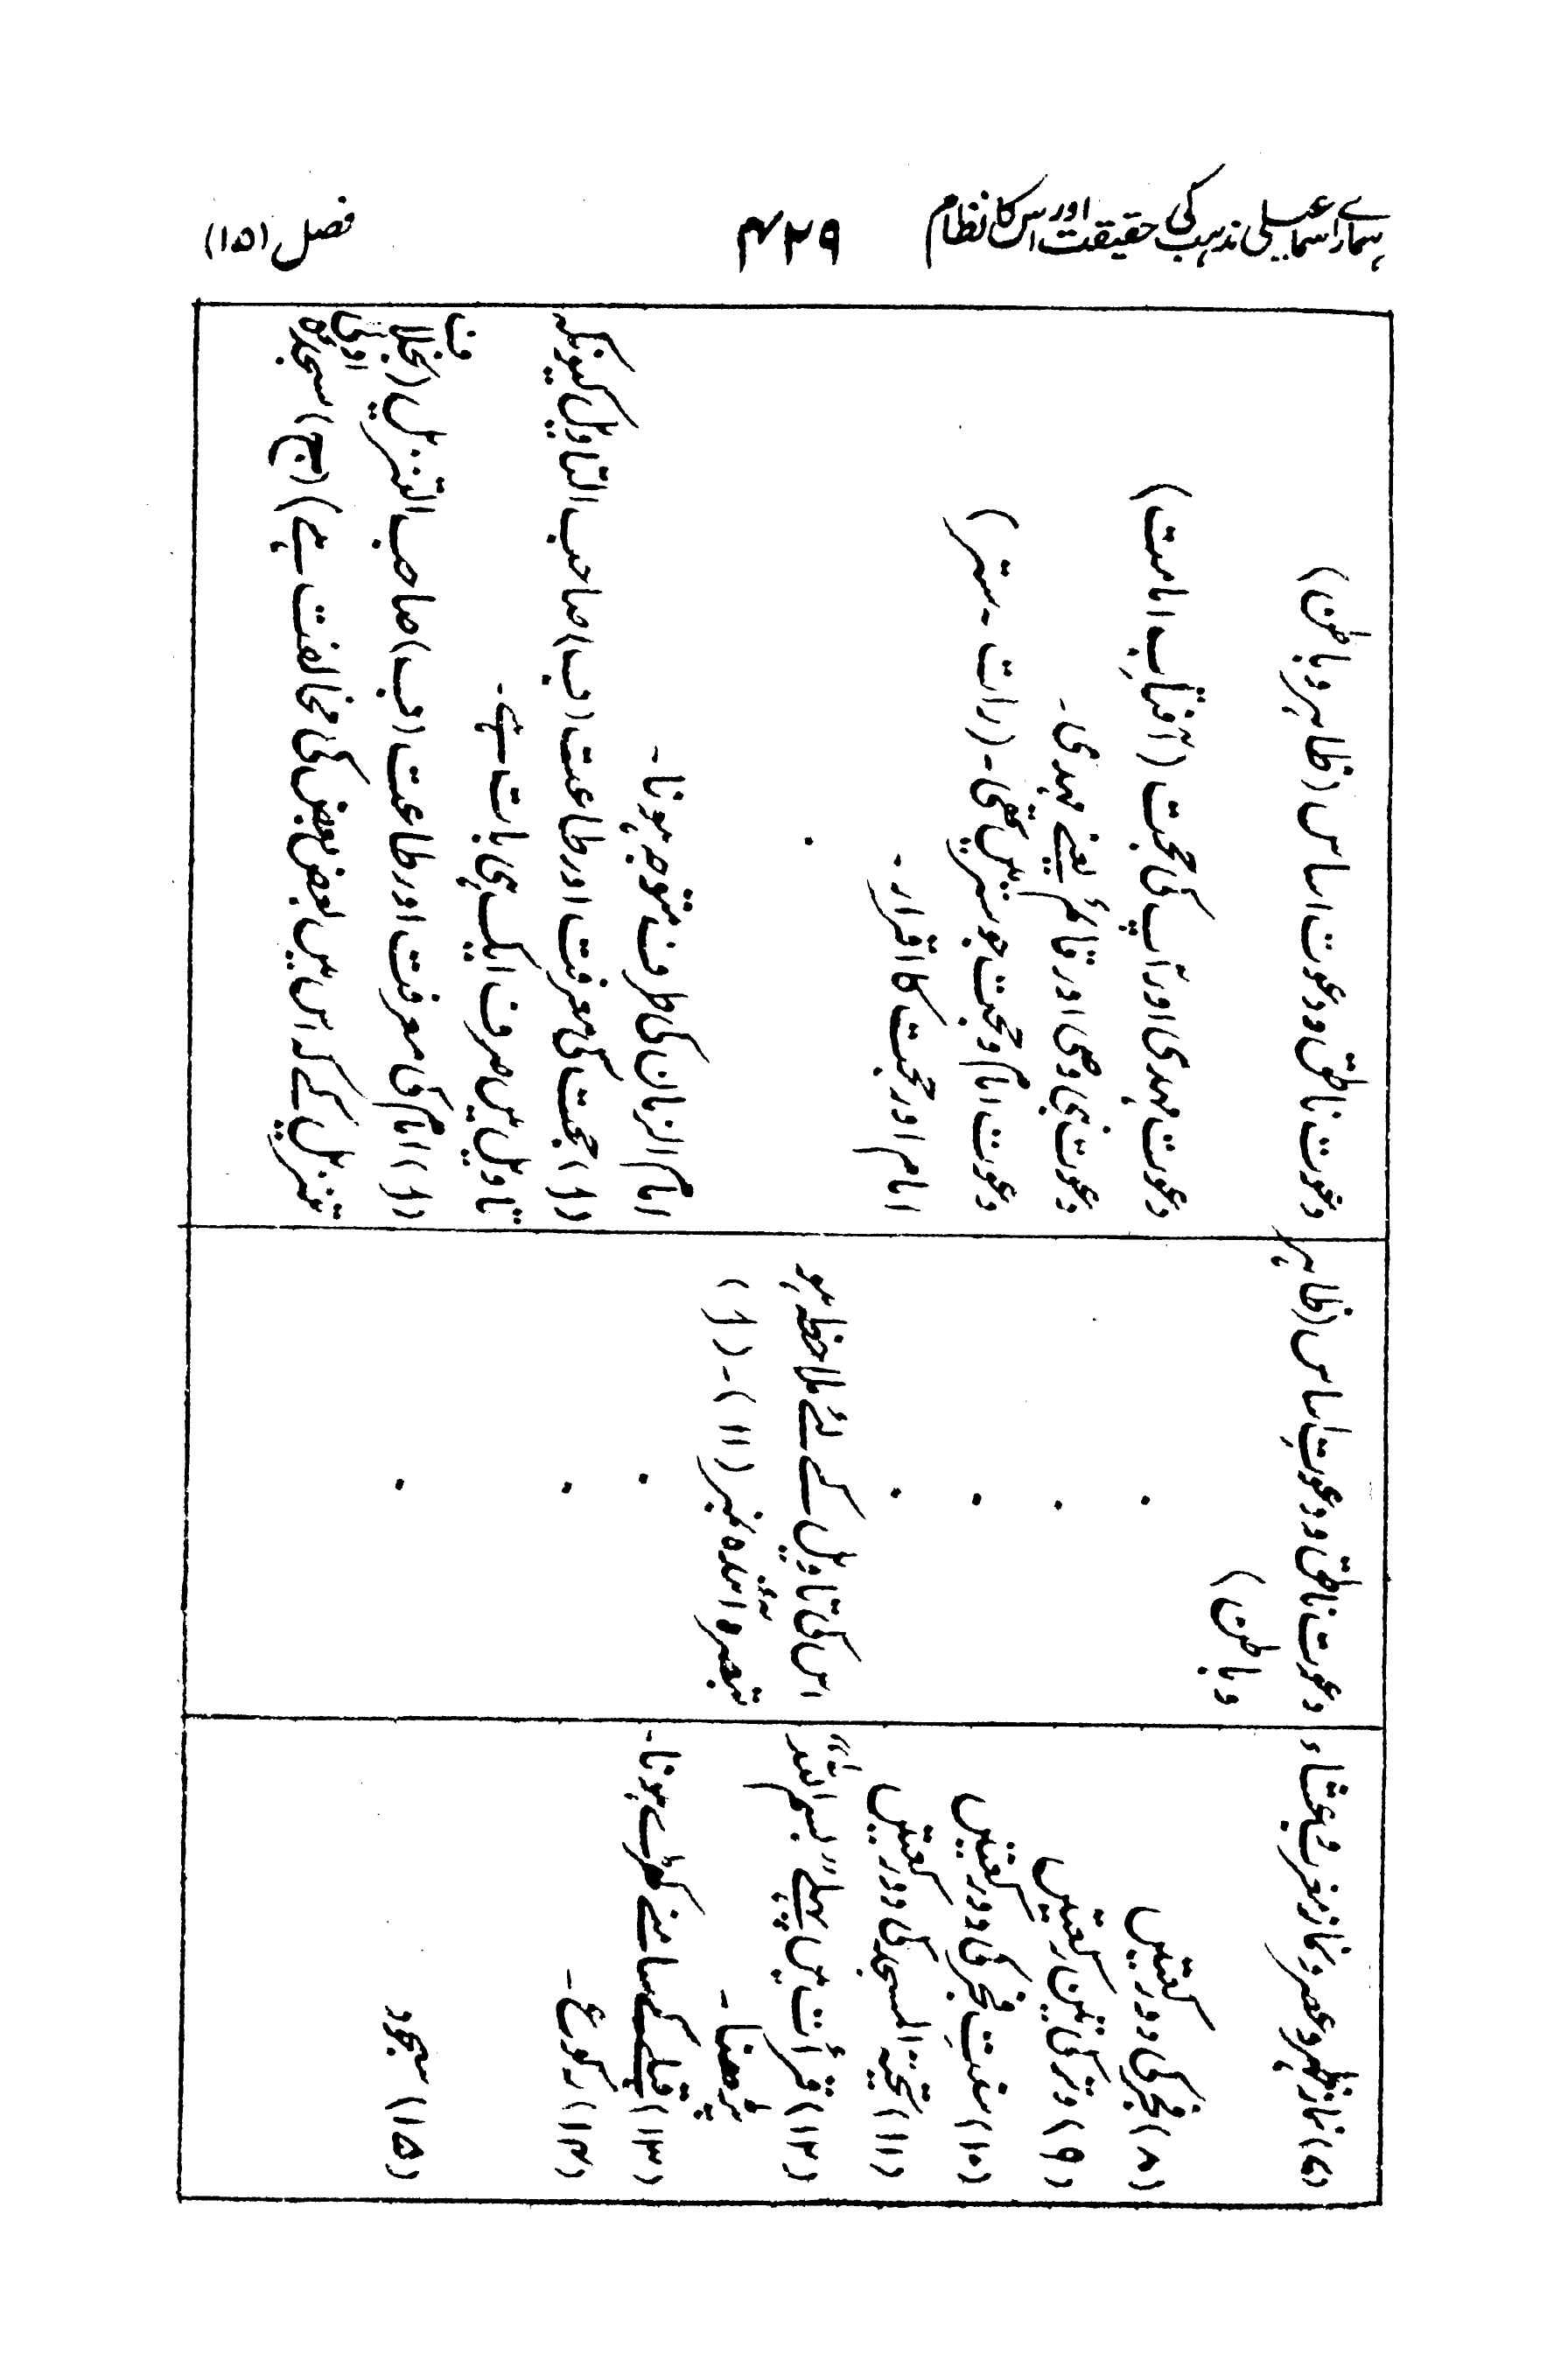 ہمارے اسماعیلی مذہب کی حقیقت اور اس کا نظام
۴۲۹
فصل (۱۵)
(۷) نماز ظہر و عصر و نماز مغرب و عشاء
دعوت ناطق و دعوتِ اساس (ظاہر
و باطن)
دعوت ناطق و دعوت اساس (ظاہر و باطن)
(۸) فجر کی دو رکعتیں
.
دعوت مہدی اور آپ کی حجت (آفتابِ امامت)
(۹) وتر کی تین رکعتیں
.
دعوت نبی وصی اور قائم یعنے مہدی۔
(۱۰) سنتِ فجر کی دو رکعتیں
.
دعوت امام و حجت جو ستر میں تھی۔ (رات ۔ ستر)
(۱۱) تحیۃ المسجد کی دو رکعتیں
.
امام اور حجت کا اقرار۔
(۱۲) قرأت میں پہلے "بسم اللہ"
پڑھنا۔
اس کی تاویل کے لئے ملاحظہ ہو
تبصرہ ائندہ نمبر (۱۱)۔ (۱)
.
(۱۳) قبلے کے سامنے کھڑے ہونا۔
.
امام الزمان کی طرف متوجہ ہونا۔
(۱۴) رکوع۔
.
(۱) حجت کی معرفت اور طاعت (ب) صاحب التاویل کیونکہ
تاویل میں صرف ایک ہی بات ہے۔
(۱۵) سجود
.
(۱) امام کی معرفت اور طاعت (ب) صاحب التنزیل (بخلاف
تنزیل کے کہ اس میں بعض بعض کی مخالفت ہے) (ج) سجدۂ اولیٰ